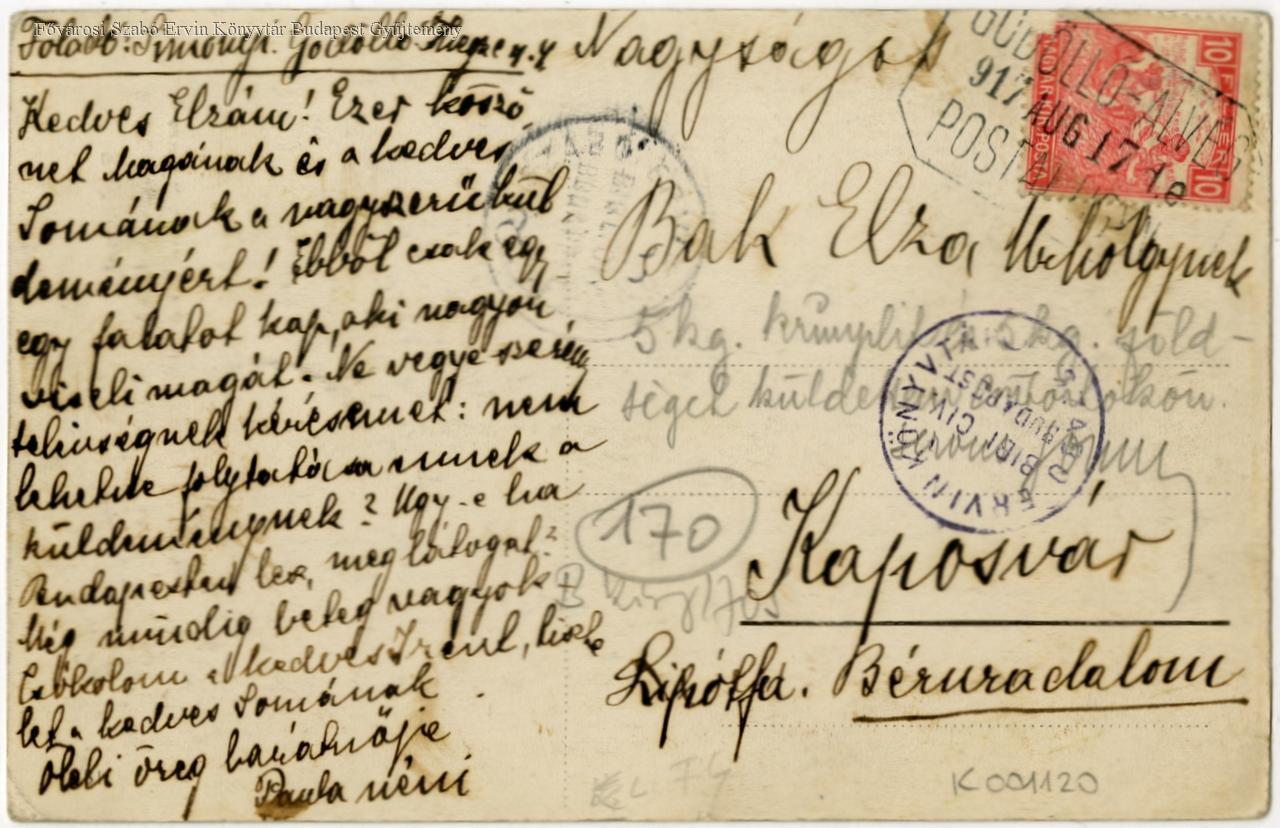 Fővárosi Szabó Ervin Könyvtár Budapest Gyűjtemény
Feladó: Simonyi. Gödöllő
Kedves Elzám! Ezer köszö
net Magának és a kedves
Somának a nagyszerű kül
deményért! Ebből csak egy
egy falatot kap, aki nagyon
viseli magát. Ne vegye szerény
telenségnek kérésemet: nem
lehetne folytatása ennek a
küldeménynek? Ugy-e ha
Budapesten lesz, meglátogat?
Még mindig beteg vagyok.
Csókolom a kedves Irént, tiszte
let a kedves Somának
öreg barátnője
Paula néni
Nagyságos
Bak Elza Urhölgynek
5 kg. krumplit és 5 kg. zöld-
séget küldenek
Kaposvár
Lipótfa. Béruradalom
GÖDÖLLŐ-ALVÉG
917 AUG 17
POSTAI
10 FILLÉR 10
MAGYAR KIR. POSTA
SZABÓ ERVIN KÖNYVTÁR
BUDAPEST
170
K 001120